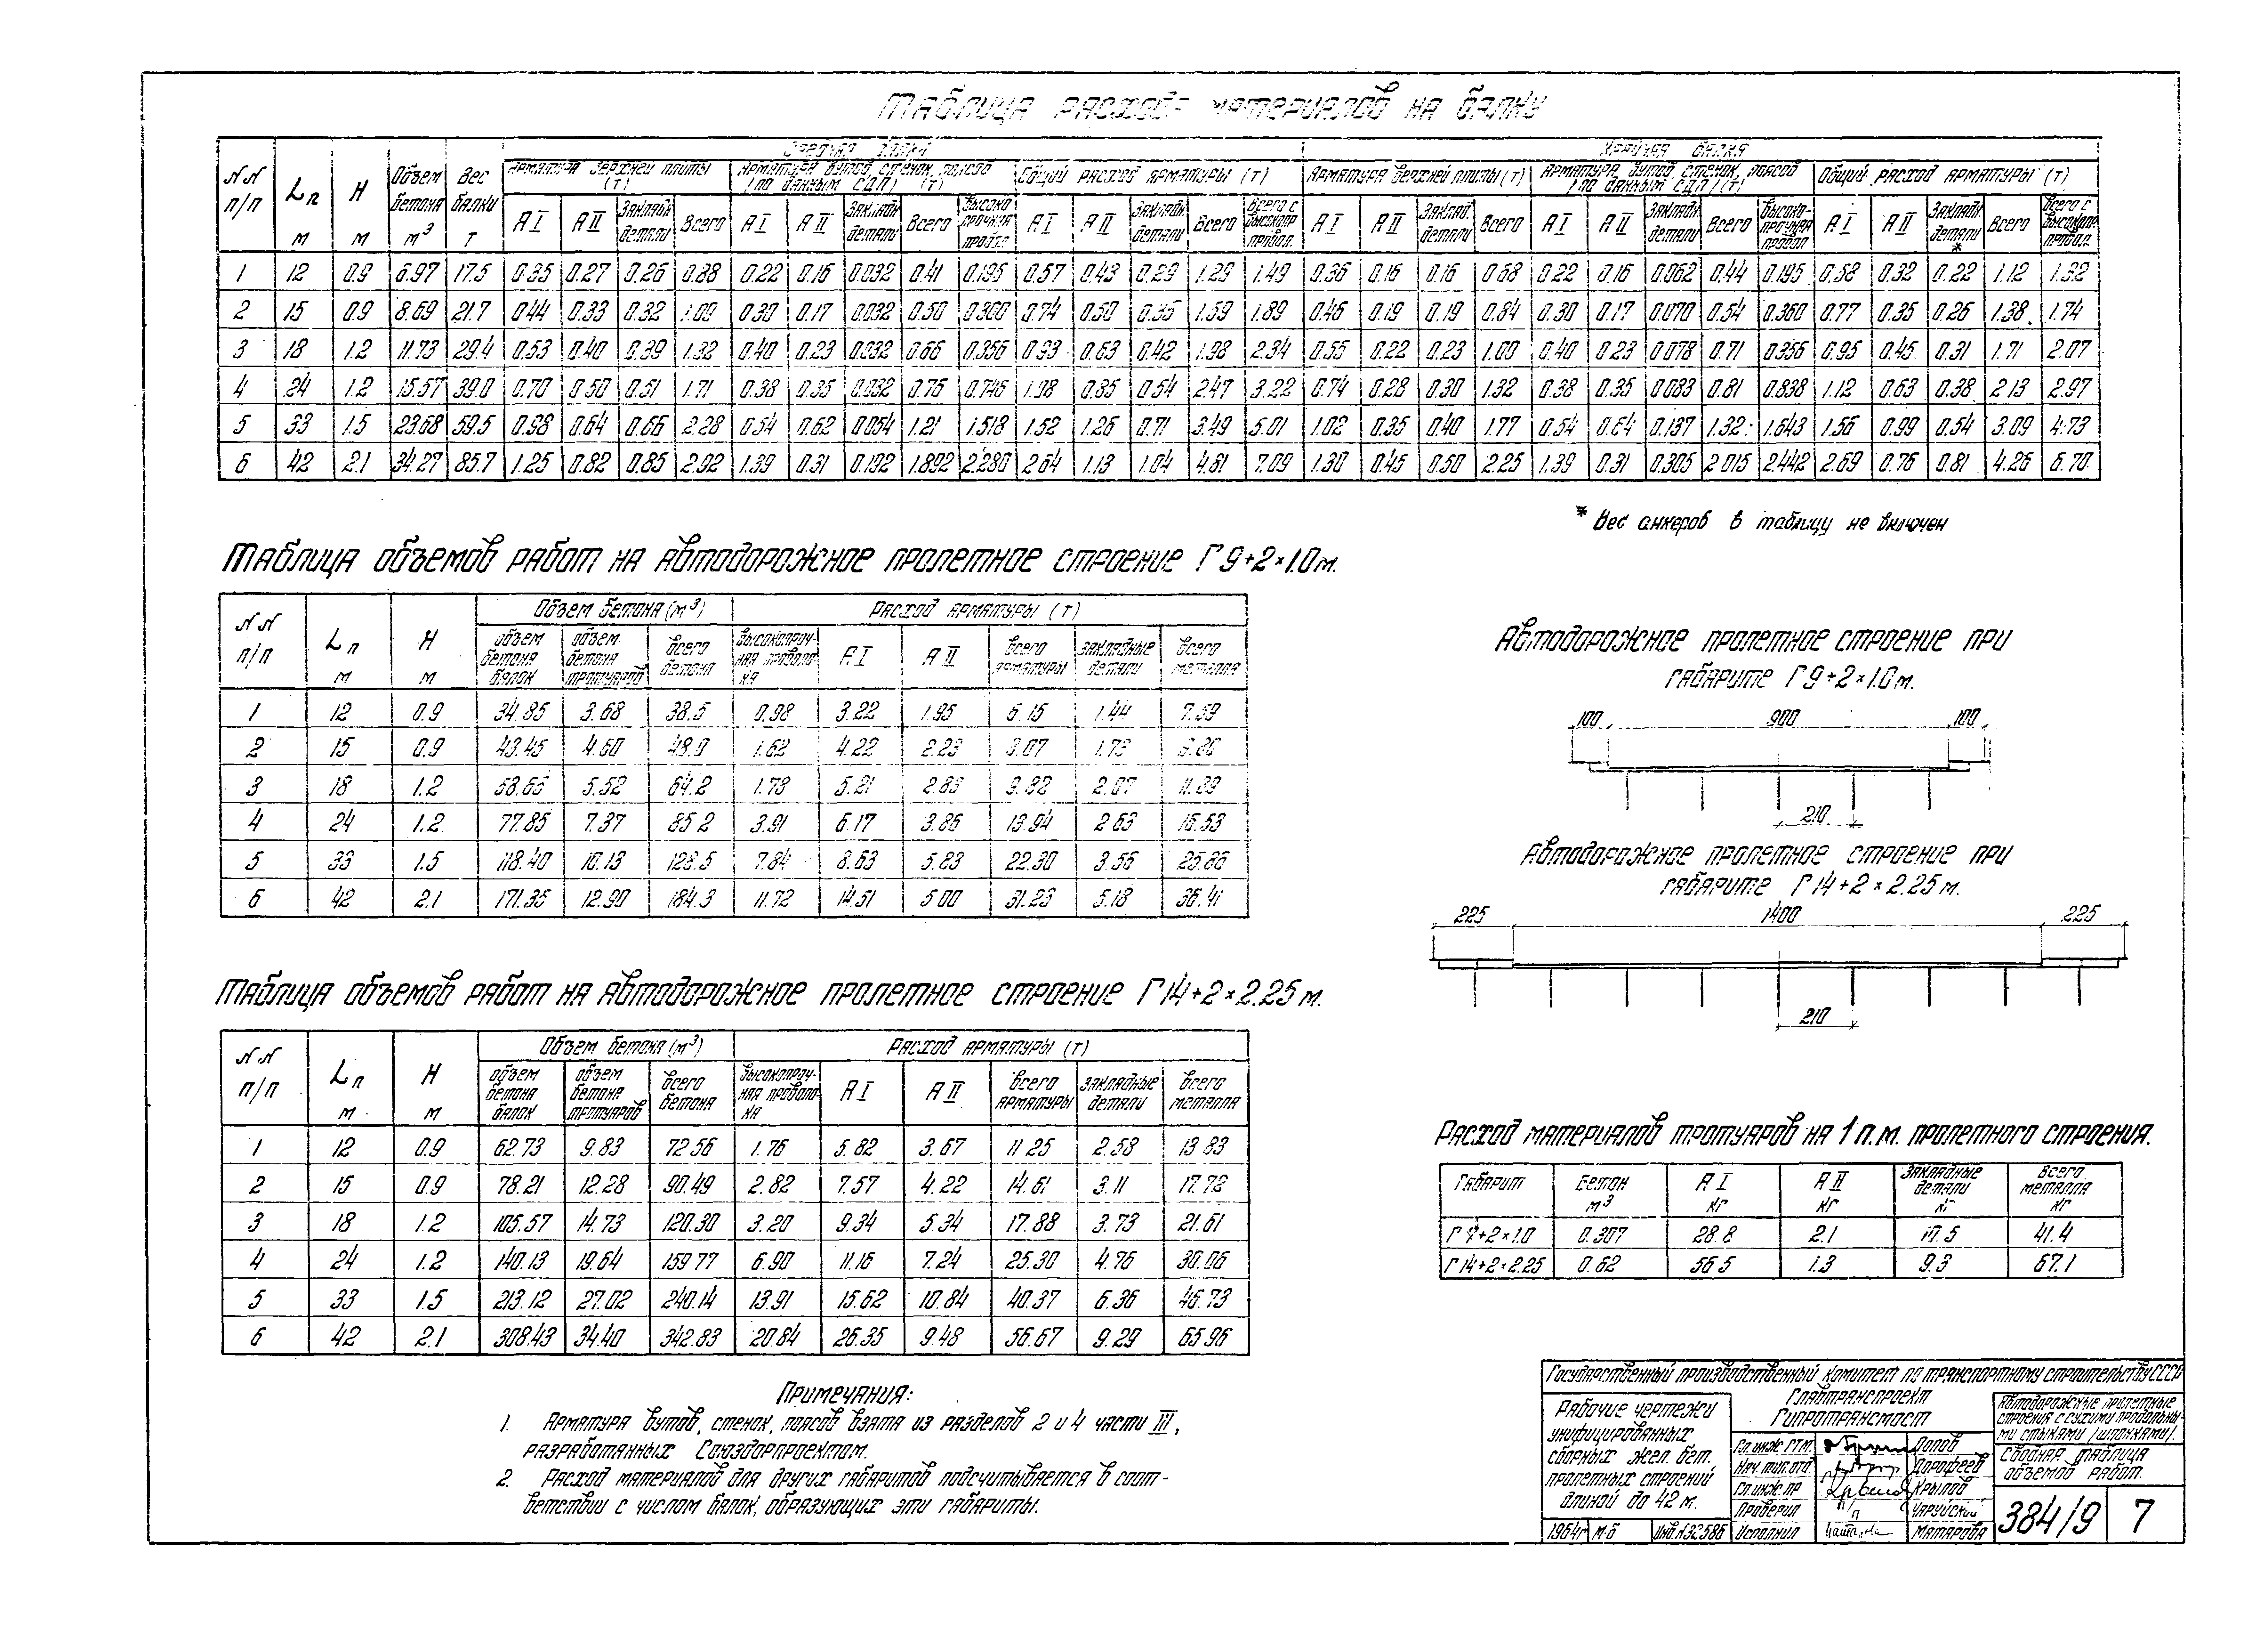 Таблица расхода материалов на балку
NN п/п | Lп м | H м | Объем бетона м³ | Вес балки т | Средняя балка | Крайняя балка
Арматура верхней плиты (т) | Арматура вутов, стенок, поясов (по данным СДП) (т) | Общий расход арматуры (т) | Арматура верхней плиты (т) | Арматура вутов, стенок, поясов (по данным СДП) (т) | Общий расход арматуры (т)
А I | А II | Закладн. детали | Всего | А I | А II | Закладн. детали | Всего | Высокопрочная провол. | А I | А II | Закладн. детали | Всего | Всего с высокопр. провол. | А I | А II | Заклад. детали | Всего | А I | А II | Закладн. детали | Всего | Высокопрочная провол. | А I | А II | Закладн. детали * | Всего | Всего с высокопр. провол.
1 | 12 | 0.9 | 6.97 | 17.5 | 0.35 | 0.27 | 0.26 | 0.88 | 0.22 | 0.16 | 0.032 | 0.41 | 0.195 | 0.57 | 0.43 | 0.29 | 1.29 | 1.49 | 0.36 | 0.16 | 0.16 | 0.68 | 0.22 | 0.16 | 0.062 | 0.44 | 0.195 | 0.58 | 0.32 | 0.22 | 1.12 | 1.32
2 | 15 | 0.9 | 8.69 | 21.7 | 0.44 | 0.33 | 0.32 | 1.09 | 0.30 | 0.17 | 0.032 | 0.50 | 0.300 | 0.74 | 0.50 | 0.35 | 1.59 | 1.89 | 0.46 | 0.19 | 0.19 | 0.84 | 0.30 | 0.17 | 0.070 | 0.54 | 0.360 | 0.77 | 0.35 | 0.26 | 1.38 | 1.74
3 | 18 | 1.2 | 11.73 | 29.4 | 0.53 | 0.40 | 0.39 | 1.32 | 0.40 | 0.23 | 0.032 | 0.66 | 0.356 | 0.93 | 0.63 | 0.42 | 1.98 | 2.34 | 0.55 | 0.22 | 0.23 | 1.00 | 0.40 | 0.23 | 0.078 | 0.71 | 0.356 | 0.95 | 0.45 | 0.31 | 1.71 | 2.07
4 | 24 | 1.2 | 15.57 | 39.0 | 0.70 | 0.50 | 0.51 | 1.71 | 0.38 | 0.35 | 0.032 | 0.76 | 0.746 | 1.08 | 0.85 | 0.54 | 2.47 | 3.22 | 0.74 | 0.28 | 0.30 | 1.32 | 0.38 | 0.35 | 0.083 | 0.81 | 0.838 | 1.12 | 0.63 | 0.38 | 2.13 | 2.97
5 | 33 | 1.5 | 23.68 | 59.5 | 0.98 | 0.64 | 0.66 | 2.28 | 0.54 | 0.62 | 0.054 | 1.21 | 1.518 | 1.52 | 1.26 | 0.71 | 3.49 | 5.01 | 1.02 | 0.35 | 0.40 | 1.77 | 0.54 | 0.64 | 0.137 | 1.32 | 1.643 | 1.56 | 0.99 | 0.54 | 3.09 | 4.73
6 | 42 | 2.1 | 34.27 | 85.7 | 1.25 | 0.82 | 0.85 | 2.92 | 1.39 | 0.31 | 0.192 | 1.892 | 2.280 | 2.64 | 1.13 | 1.04 | 4.81 | 7.09 | 1.30 | 0.45 | 0.50 | 2.25 | 1.39 | 0.31 | 0.305 | 2.015 | 2.442 | 2.69 | 0.76 | 0.81 | 4.26 | 6.70
* Вес анкеров в таблицу не включен
Таблица объемов работ на автодорожное пролетное строение Г 9+2×1.0 м.
NN п/п | Lп м | H м | Объем бетона (м³) | Расход арматуры (т)
объем бетона балок | объем бетона тротуаров | всего бетона | высокопрочная проволока | А I | А II | всего арматуры | закладные детали | всего металла
1 | 12 | 0.9 | 34.85 | 3.68 | 38.5 | 0.98 | 3.22 | 1.95 | 6.15 | 1.44 | 7.59
2 | 15 | 0.9 | 43.45 | 4.60 | 48.0 | 1.62 | 4.22 | 2.23 | 8.07 | 1.73
3 | 18 | 1.2 | 58.65 | 5.52 | 64.2 | 1.78 | 5.21 | 2.83 | 9.82 | 2.07 | 11.89
4 | 24 | 1.2 | 77.85 | 7.37 | 85.2 | 3.91 | 6.17 | 3.86 | 13.94 | 2.63 | 16.53
5 | 33 | 1.5 | 118.40 | 10.13 | 128.5 | 7.84 | 8.63 | 5.83 | 22.30 | 3.56 | 25.86
6 | 42 | 2.1 | 171.35 | 12.90 | 184.3 | 11.72 | 14.51 | 5.00 | 31.23 | 5.18 | 36.41
Автодорожное пролетное строение при
габарите Г 9+2×1.0 м.
100 900 100
210
Автодорожное пролетное строение при
габарите Г 14+2×2.25 м.
225 1400 225
210
Таблица объемов работ на автодорожное пролетное строение Г 14+2×2.25 м.
NN п/п | Lп м | H м | Объем бетона (м³) | Расход арматуры (т)
объем бетона балок | объем бетона тротуаров | всего бетона | высокопрочная проволока | А I | А II | всего арматуры | закладные детали | всего металла
1 | 12 | 0.9 | 62.73 | 9.83 | 72.56 | 1.76 | 5.82 | 3.67 | 11.25 | 2.58 | 13.83
2 | 15 | 0.9 | 78.21 | 12.28 | 90.49 | 2.82 | 7.57 | 4.22 | 14.61 | 3.11 | 17.72
3 | 18 | 1.2 | 105.57 | 14.73 | 120.30 | 3.20 | 9.34 | 5.34 | 17.88 | 3.73 | 21.61
4 | 24 | 1.2 | 140.13 | 19.64 | 159.77 | 6.90 | 11.16 | 7.24 | 25.30 | 4.76 | 30.06
5 | 33 | 1.5 | 213.12 | 27.02 | 240.14 | 13.91 | 15.62 | 10.84 | 40.37 | 6.36 | 46.73
6 | 42 | 2.1 | 308.43 | 34.40 | 342.83 | 20.84 | 26.35 | 9.48 | 56.67 | 9.29 | 65.96
Расход материалов тротуаров на 1 п.м. пролетного строения.
Габарит | Бетон м³ | А I кг | А II кг | Закладные детали кг | Всего металла кг
Г 9+2×1.0 | 0.307 | 28.8 | 2.1 | 10.5 | 41.4
Г 14+2×2.25 | 0.62 | 56.5 | 1.3 | 9.3 | 67.1
Примечания:
1. Арматура вутов, стенок, поясов взята из разделов 2 и 4 части III,
разработанных Союздорпроектом.
2. Расход материалов для других габаритов подсчитывается в соот-
ветствии с числом балок, образующих эти габариты.
Государственный производственный комитет по транспортному строительству СССР
Главтранспроект
Гипротрансмост
Рабочие чертежи
унифицированных
сборных жел. бет.
пролетных строений
длиной до 42 м.
Автодорожные пролетные
строения с сухими продольны-
ми стыками /шпонками/.
Сводная таблица
объемов работ.
Гл. инж. ГТМ. Попов
Нач. тип. отд. Дорофеев
Гл. инж. пр. Крылов
Проверил п/п Чаруйский
Исполнил Матарова
1964г М-б Инв.N32586
384/9 7